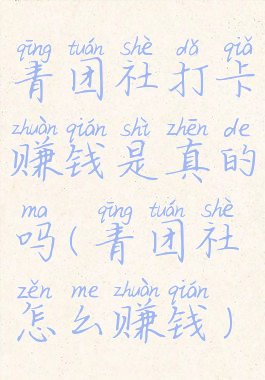 qīng tuán shè dǎ qiǎ
青团社打卡
zhuàn qián shì zhēn de
赚钱是真的
ma qīng tuán shè
吗(青团社
zěn me zhuàn qián
怎么赚钱)